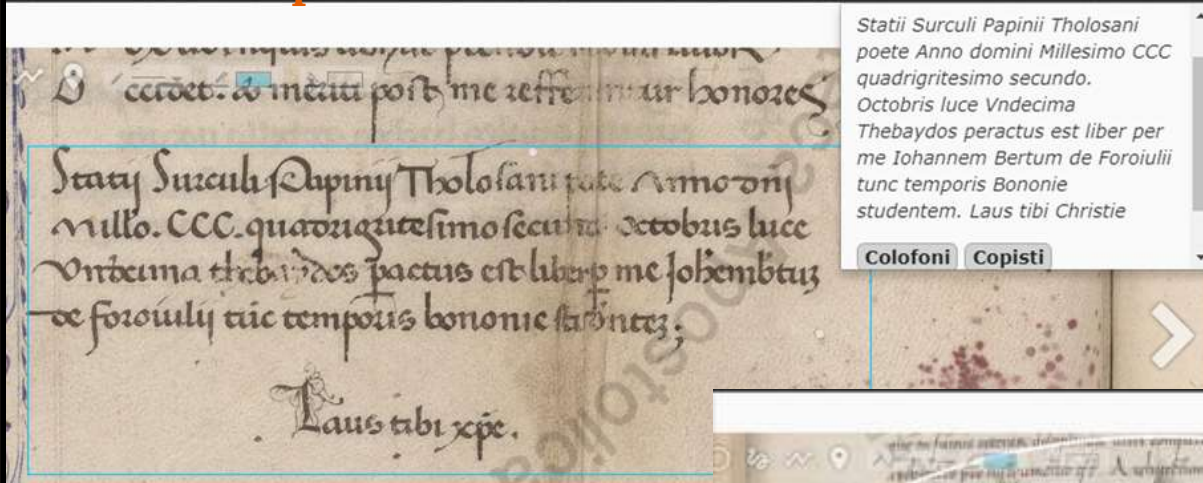 ccidet. & meriti post me refferentur honores
Statij Surculi Papinij Tholosani poete Anno dnj
Millo. CCC. quadrigritesimo secundo Octobris luce
Vndecima thebaydos pactus est liber p me Johem btuz
de foroiulij tuc temporis bononie studentez;
Laus tibi xpe.
Statii Surculi Papinii Tholosani
poete Anno domini Millesimo CCC
quadrigritesimo secundo.
Octobris luce Vndecima
Thebaydos peractus est liber per
me Iohannem Bertum de Foroiulii
tunc temporis Bononie
studentem. Laus tibi Christie
Colofoni Copisti